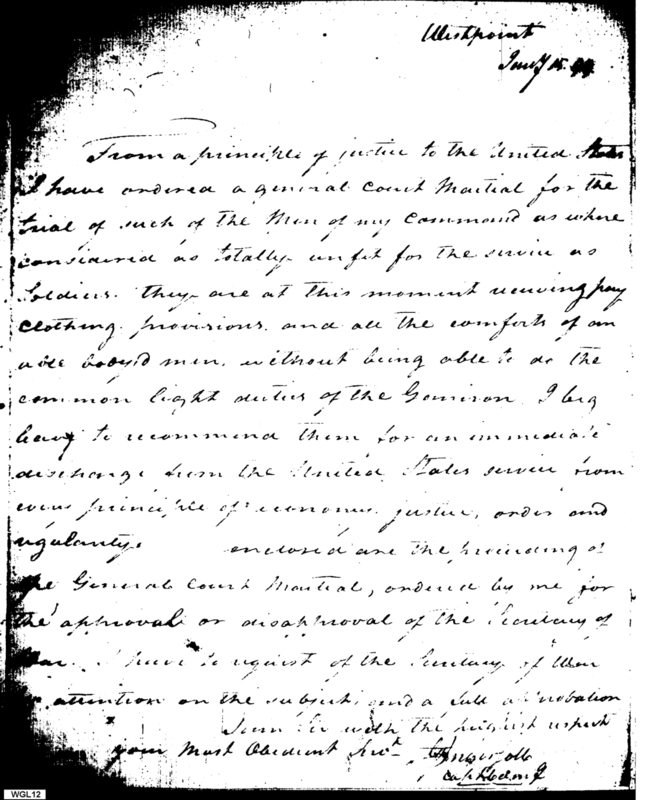 Westpoint
Jany 15
From a principle of justice to the United States
I have ordered a general Court Martial for the
trial of such of the Men of my command as where
considered as totally unfit for the service as
Soldiers. they are at this moment receiving pay
clothing. provisions. and all the comforts of an
able body'd men. without being able to do the
common light duties of the Garrison. I beg
leave to recommend them for an immediate
discharge from the United States service from
every principle of economy. justice, order and
regularity. enclosed are the proceeding of
the General Court Martial, ordered by me for
the approval or disapproval of the Secretary of
War. I have to request of the Secretary of War
attention on the subject, and a full approbation
I am Sir with the highest respect
your Most Obedient Servt.
Capt
WGL12